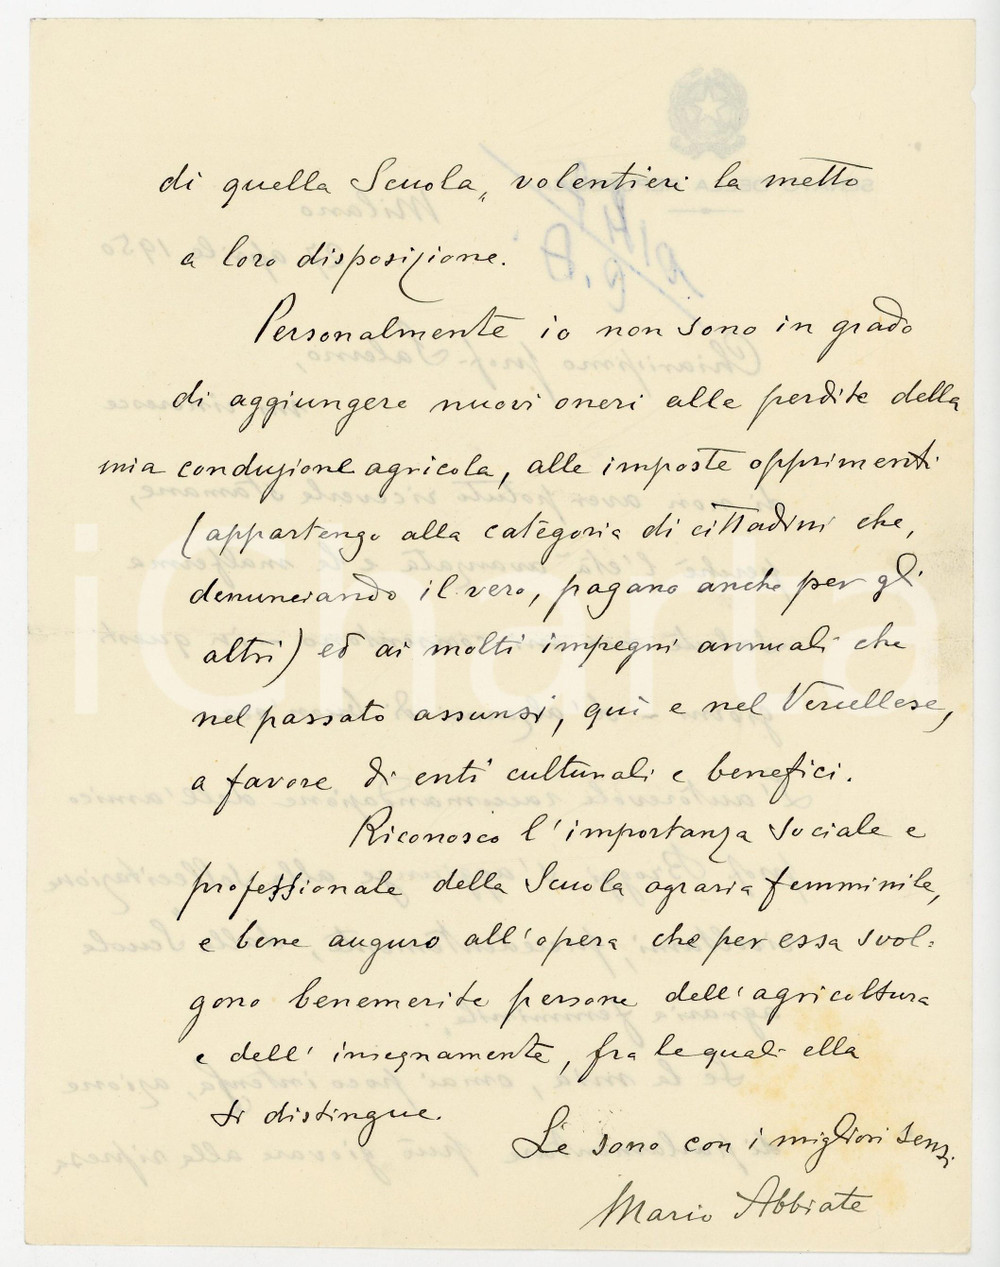 di quella Scuola„ volentieri la metto
a loro disposizione.
Personalmente io non sono in grado
di aggiungere nuovi oneri alle perdite della
mia conduzione agricola, alle imposte opprimenti
(appartengo alla categoria di cittadini che,
denunciando il vero, pagano anche per gli
altri) ed ai molti impegni annuali che
nel passato assunsi, quì e nel Vercellese,
a favore di enti culturali e benefici.
Riconosco l'importanza sociale e
professionale della Scuola agraria femminile,
e bene auguro all'opera che per essa svol=
gono benemerite persone dell'agricoltura
e dell'insegnamento, fra le quali ella
si distingue.
Le sono con i migliori sensi
Mario Abbiate
iCharta